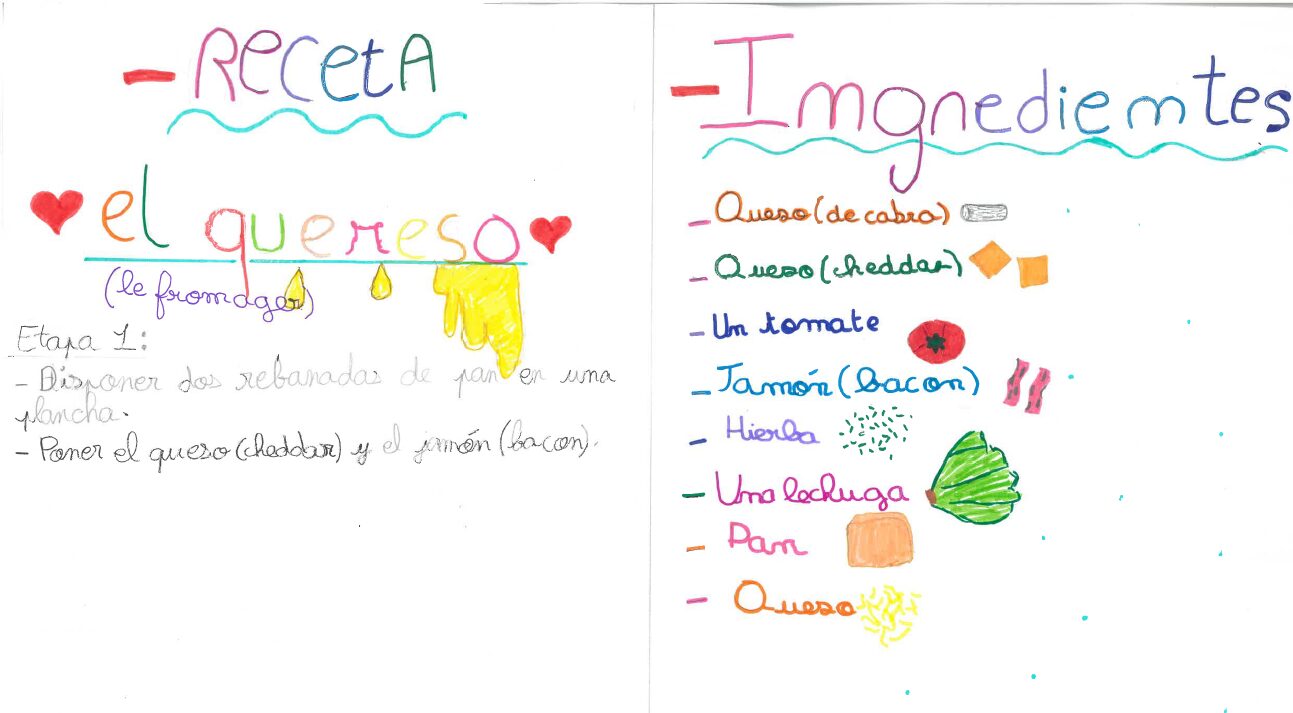 - RECETA
el quereso
(le fromager)
Etapa 1:
- Disponer dos rebanadas de pan en una
plancha.
- Poner el queso (cheddar) y el jamón (bacon).
- Imgnediemtes
- Queso (de cabra)
- Queso (cheddar)
- Un tomate
- Jamón (bacon)
- Hierba
- Una lechuga
- Pan
- Queso